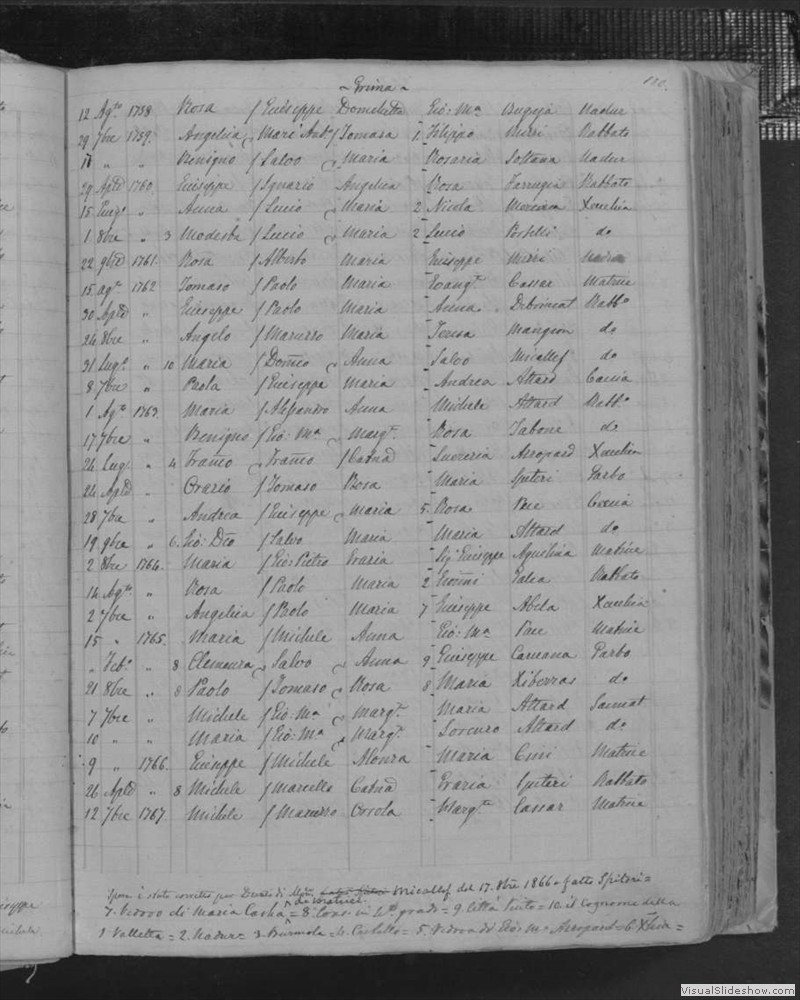 ~ Grima ~
120.
12 Ag.to 1758 Rosa f Giuseppe Domeletta Gio: Ma Bugeja Nadur
29 7bre 1759. Angelica Mari' And.a f Tomasa 1. Filippo Murri Rabbato
11 " " Benigno f Salvo Maria Rosaria Soltana Nadur
29 Aple 1760. Giuseppe f Ignazio Angelica Rosa Farrugia Rabbato
15 Giug.o " Anna f Lucio Maria 2 Nicola Xeuchia
1. 8bre " 3 Modesta f Lucio Maria 2 Lucio Portelli do
22 9bre 1761. Rosa f Alberto Maria Giuseppe Mizzi Nadur
15 ag.to 1762 Tomaso f Paolo Maria Evang.ta Cassar Matrice
30 Aple " Giuseppe f Paolo Maria Anna Debrincat Rabb.o
24 8bre " Angelo f Maruzzo Maria Teresa Mangion do
31 Lug.o " 10 Maria f Dom.co Anna Salvo Micallef do
8 7bre " Paola f Giuseppe Maria Andrea Attard Caccia
1 Ag.to 1763. Maria f Alessandro Anna Michele Attard Rabb.o
17 7bre " Benigno f Gio: Ma Marg.ta Rosa Tabone do
24 Lug.o " 4 Franco Franco f Catna Saveria Azzopard Xeuchia
24 Aple " Orazio f Tomaso Rosa Maria Spiteri Garbo
28 7bre " Andrea f Giuseppe Maria 5. Rosa Pace Caccia
19 9bre " 6. Gio: Dto f Salvo Maria Maria Attard do
2 8bre 1764. Maria f Gio: Pietro Grazia Sig.r Giuseppe Agustina Matrice
14 Ag.to " Rosa f Paolo Maria 2 Giovni Galea Rabbato
2 7bre " Angelica f Paolo Maria 7 Giuseppe Abela Xeuchia
15 " 1765. Maria f Michele Anna Gio: Ma Pace Matrice
" Feb.o " 8 Clemenza Salvo Anna 9 Giuseppe Camana Garbo
21 8bre " 8 Paolo f Tomaso Rosa 8 Maria Xiberras do
7 7bre " Michele f Gio: Ma Marg.ta Maria Attard Sannat
10 " " Maria f Gio: Ma Marg.ta Sorcuro Attard do
9 " 1766. Giuseppe f Michele Alonza Maria Cini Matrice
26 Aple " 8 Michele f Marcello Catna Grazia Spiteri Rabbato
12 7bre 1767. Michele f Maruzzo Orsola Marg.ta Cassar Matrice
è stato corretto per Decreto di Micallef del 17. 8bre 1866 e fatto Spiteri =
7. Vedovo di Maria Cachia = 8. Cons: in 4to grado = 9. Città Vitto = 10. il Cognome della
1 Valletta = 2. Nadur = 3. Burmola = 4. Castello = 5. Vedova di Gio: Ma Azzopard = 6. Xeuchia =
VisualSlideshow.com